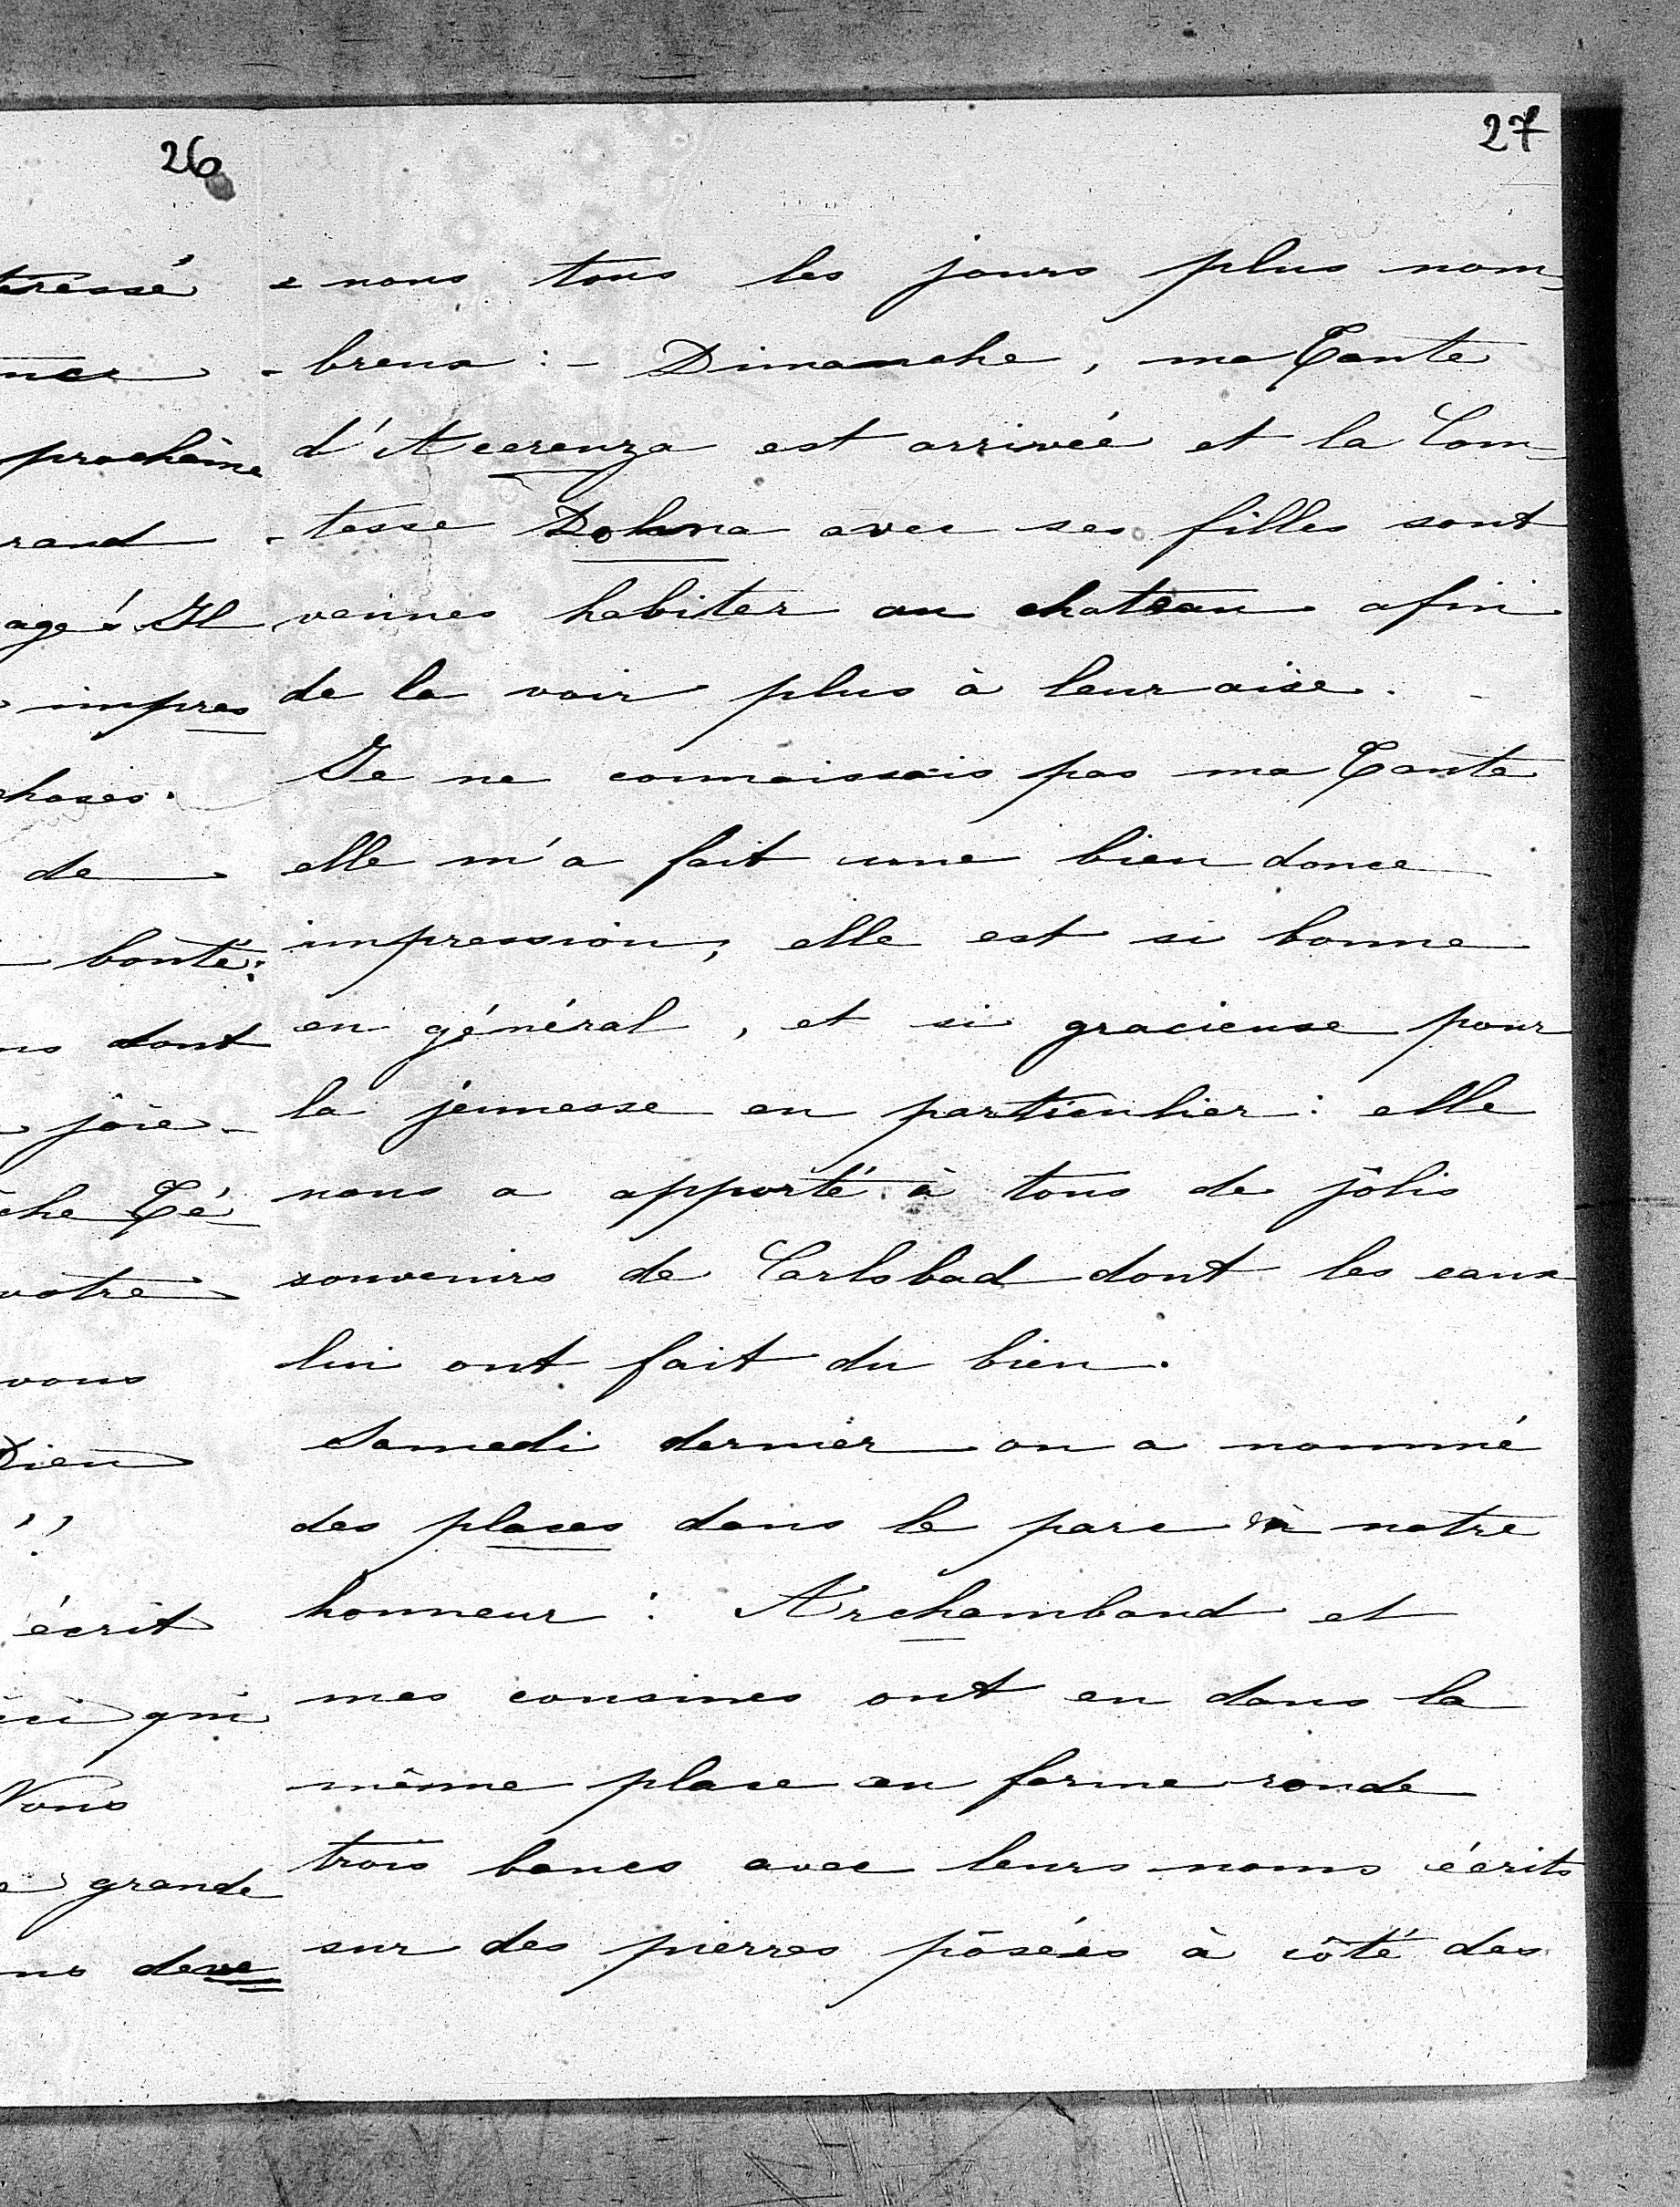 26
téressé
prochaine
rand
agé! Il
impres
choses.
de
bonté:
ns dont
joie
che Té
votre
vous
Dieu
écrit
qui
Vous
grande
ns deve
27
= nous tous les jours plus nom=
- breux :- Dimanche, ma Tante
d'Acerenza est arrivée et la Com=
- tesse Dohna avec ses filles sont
venues habiter au chateau afin
de la voir plus à leur aise. -
Je ne connaissais pas ma Tante
elle m'a fait une bien douce
impression; elle est si bonne
en général, et si gracieuse pour
la jeunesse en particulier: elle
nous a apporté à tous de jolis
souvenirs de Carlsbad dont les eaux
lui ont fait du bien.
Samedi dernier on a nommé
des places dans le parc à notre
honneur : Archambaud et
mes cousines ont eu dans la
même place en forme ronde
trois bancs avec leurs noms écrits
sur des pierres posées à côté des